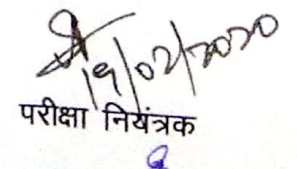 19/02/2020
परीक्षा नियंत्रक